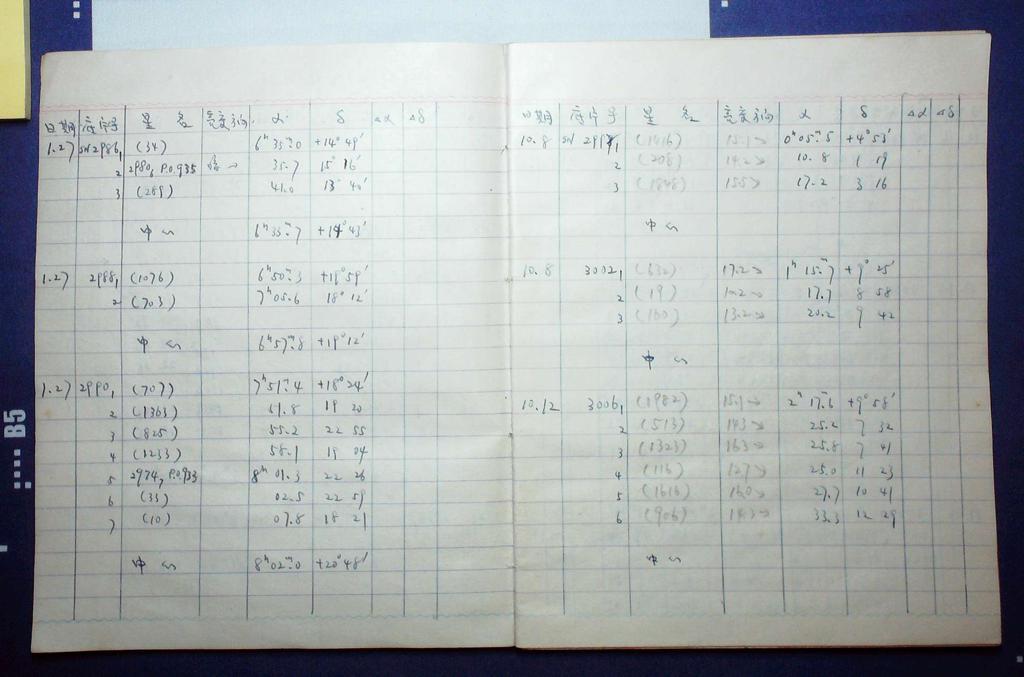 日期 底片号 星名 亮度 α δ Δα Δδ
1.27 SN 2986, 1 (34) 6ʰ35ᵐ.0 +14°49′
2 2980, P.O.935 暗→ 35.7 15°16′
3 (289) 41.0 13°40′
中心 6ʰ35ᵐ.7 +14°43′
1.27 2988, 1 (1076) 6ʰ50ᵐ.3 +19°59′
2 (703) 7ʰ05.6 18°12′
中心 6ʰ57ᵐ.8 +19°12′
1.27 2990, 1 (707) 7ʰ51ᵐ.4 +18°24′
2 (1363) 51.8 19 20
3 (825) 55.2 22 55
4 (1233) 58.1 19 04
5 2974, P.O.933 8ʰ01.3 22 26
6 (33) 02.5 22 59
7 (10) 07.8 18 21
中心 8ʰ02ᵐ.0 +20°48′
日期 底片号 星名 亮度 α δ Δα Δδ
10.8 SN 1 (1416) 15.1→ 0ʰ05ᵐ.5 +4°53′
2 (208) 14.2→ 10.8 1 19
3 (1848) 15.5→ 17.2 3 16
中心
10.8 3002, 1 (632) 17.2→ 1ʰ15ᵐ.7 +9°25′
2 (19) 17.7 8 58
3 (100) 13.2→ 20.2 9 42
中心
10.12 3006, 1 (1982) 15.1→ 2ʰ17ᵐ.6 +9°58′
2 (513) 14.3→ 25.2 7 32
3 (1323) 16.3→ 25.8 7 41
4 (116) 12.7→ 25.0 11 23
5 (1616) 16.0→ 27.7 10 41
6 (906) 14.3→ 33.3 12 29
中心
B5